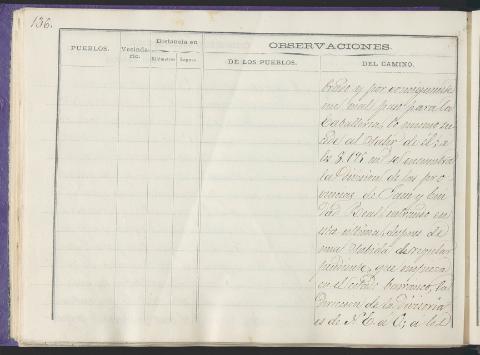 136.
PUEBLOS.
Vecinda-
rio.
Distancia en
Kilómetros
Leguas
OBSERVACIONES
DE LOS PUEBLOS.
DEL CAMINO.
brado y por consiguiente
muy mal paso para la
Caballeria, lo mismo su-
cede al salir de él; a
los 8.195 m.s se encuentra
la division de las pro
vincias de Jaen y Ciu
dad Real, entrando en
esta ultima, despues de
una subida de regular
pendiente, que empieza
en el citado barranco, la
direccion de la divisoria
es de N.E. a O; a los